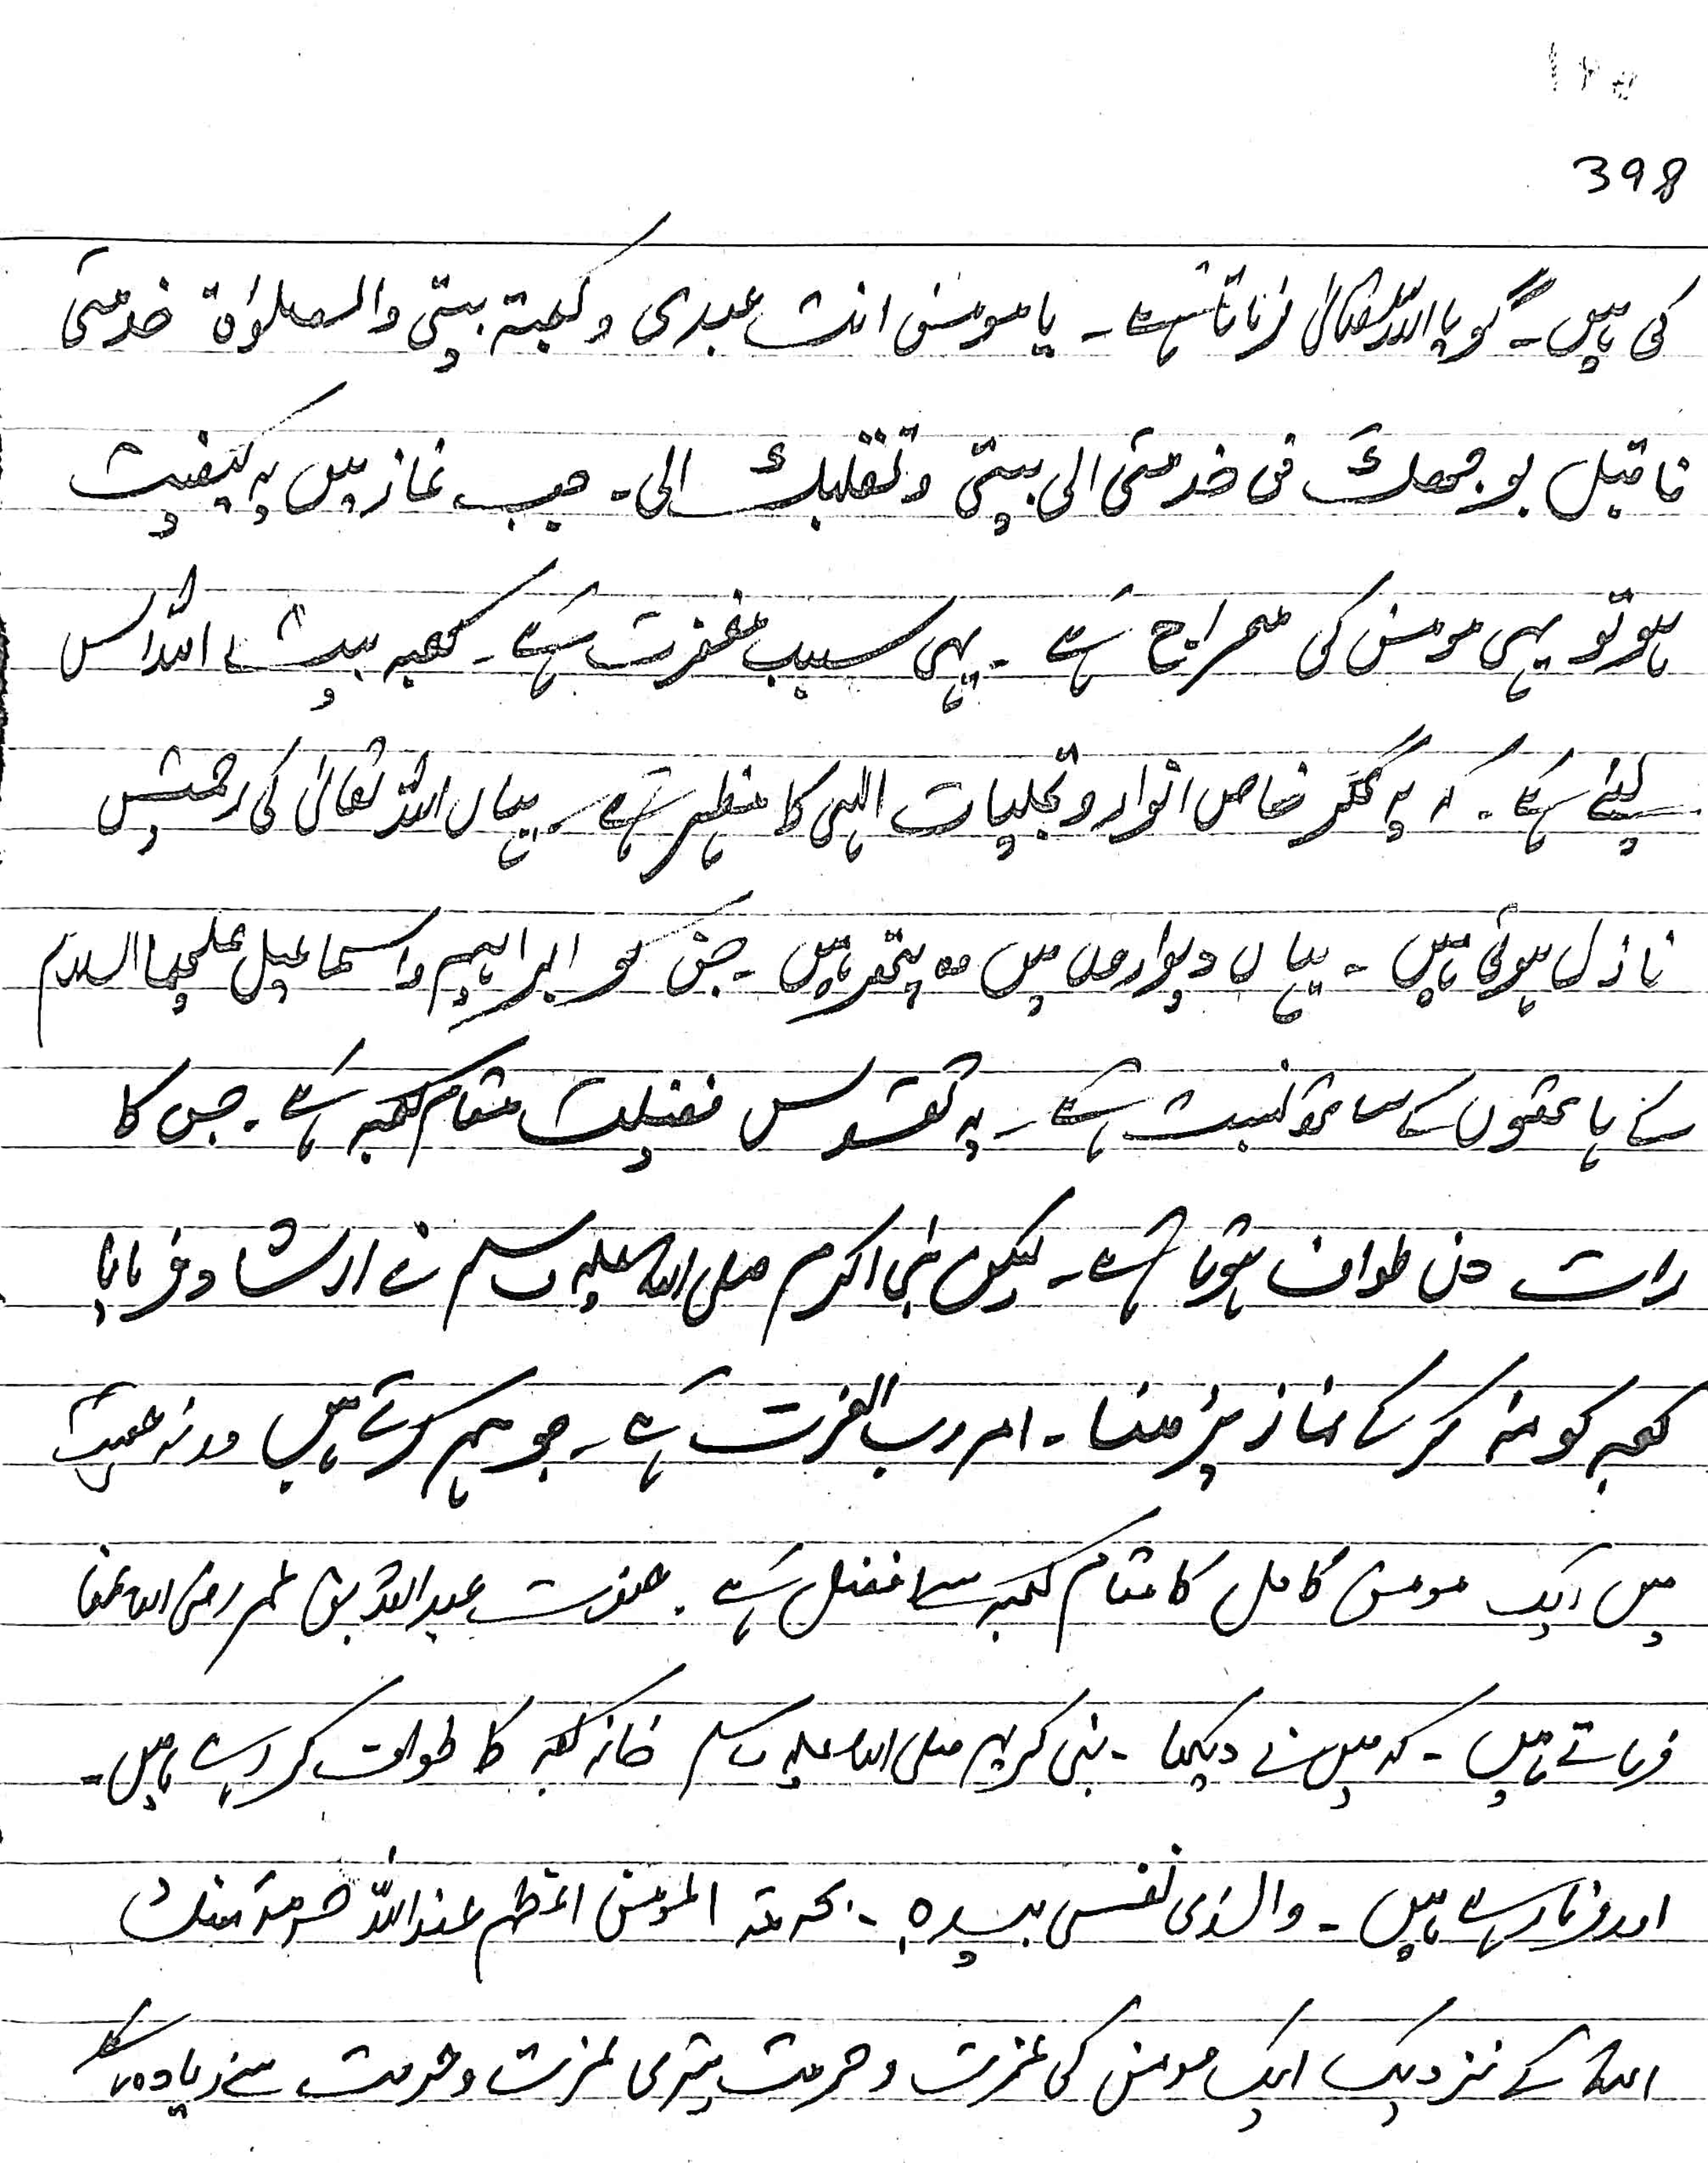 398
کی ہیں۔ گویا اللہ تعالیٰ فرماتا ہے۔ یا مومنی انت عبدی وکعبتہ بیتی والصلوٰۃ خدمتی
فاقبل بوجھک فی خدمتی الی بیتی وتقلبک الی۔ جب نماز میں یہ کیفیت
ہو تو یہی مومن کی معراج ہے۔ یہی سبب مغفرت ہے۔ کعبہ بیت اللہ اس
لیئے ہے۔ کہ یہ گھر خاص انوار و تجلیات الہی کا منظہر ہے۔ یہاں اللہ تعالیٰ کی رحمتیں
نازل ہوتی ہیں۔ یہاں دیواروں میں وہ پتھر ہیں۔ جن کو ابراہیم واسماعیل علیھما السلام
کے ہاتھوں کے ساتھ نسبت ہے۔ یہ تقدس فضیلت مقام کعبہ ہے۔ جس کا
رات دن طواف ہوتا ہے۔ لیکن نبی اکرم صلی اللہ علیہ وسلم نے ارشاد فرمایا
کعبہ کو منہ کر کے نماز پڑھنا۔ امر رب العزت ہے۔ جو ہم کرتے ہیں ورنہ حقیقت
میں ایک مومن کامل کا مقام کعبہ سے افضل ہے۔ حضرت عبداللہ بن عمر رضی اللہ عنھا
فرماتے ہیں۔ کہ میں نے دیکھا۔ نبی کریم صلی اللہ علیہ وسلم خانہ کعبہ کا طواف کر رہے ہیں۔
اور فرما رہے ہیں۔ والذی نفسی بیدہ۔ بحرمتہ المومن اعظم عند اللہ حرمۃ منک
اللہ کے نزدیک ایک مومن کی عزت و حرمت تیری عزت و حرمت سے زیادہ